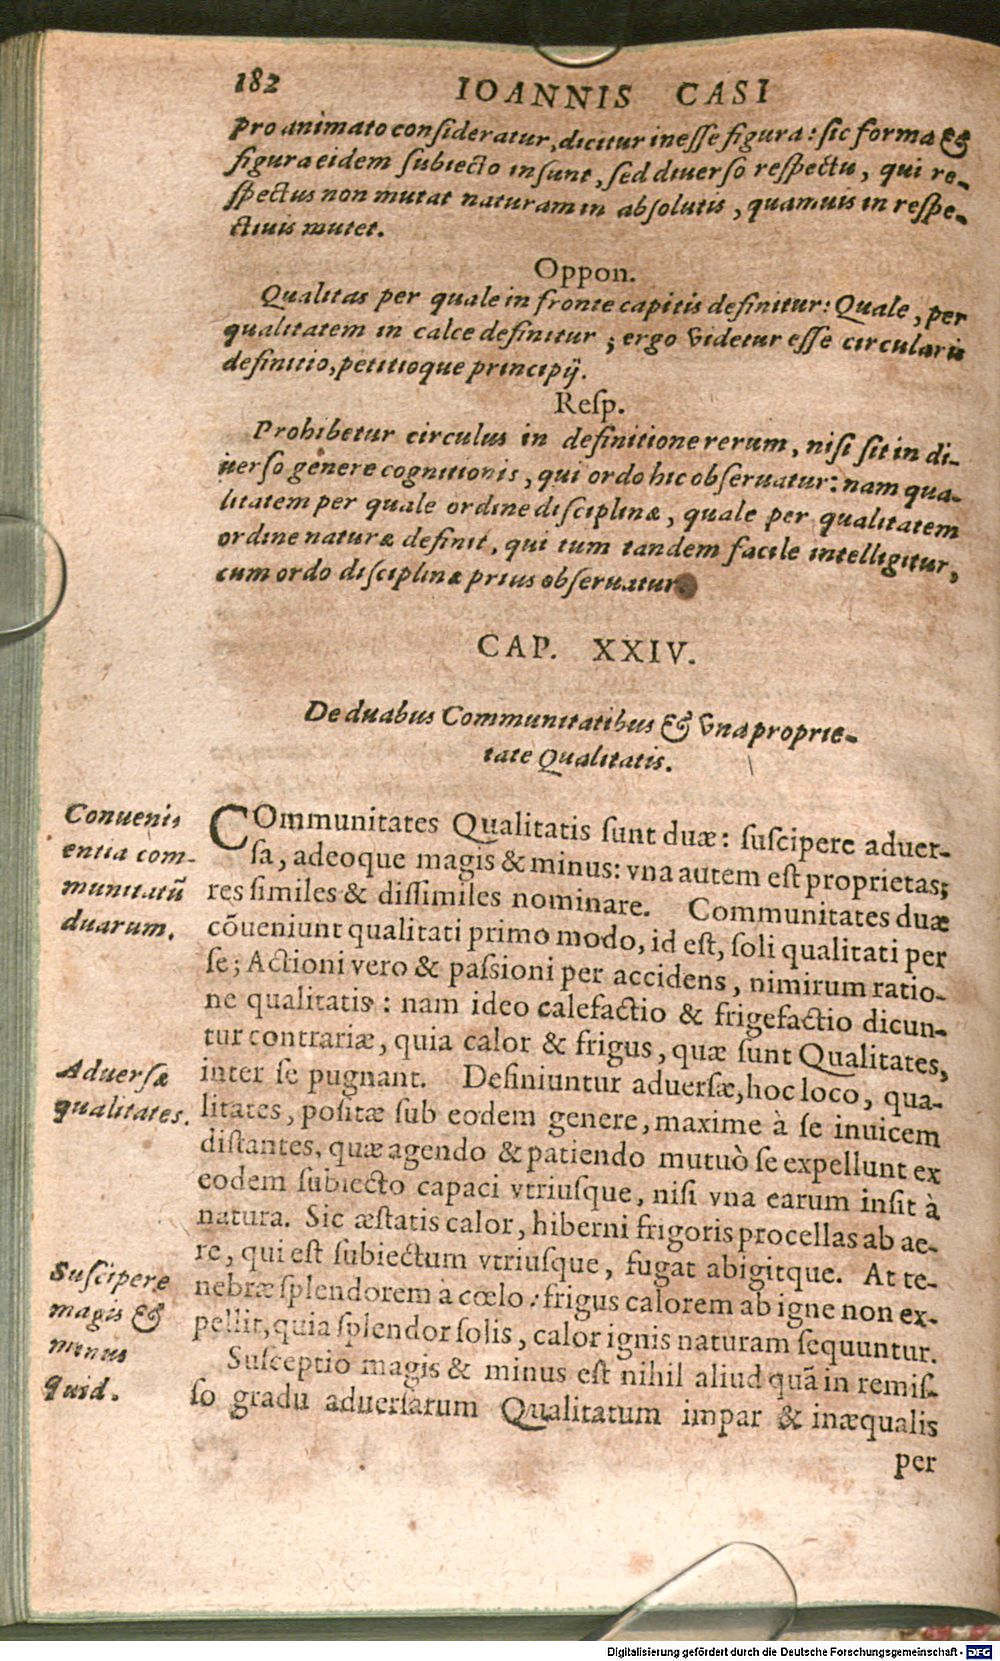 182 IOANNIS CASI
pro animato consideratur, dicitur inesse figura: sic forma &
figura eidem subiecto insunt, sed diuerso respectu, qui re-
spectus non mutat naturam in absolutis, quamuis in respe-
ctiuis mutet.
Oppon.
Qualitas per quale in fronte capitis definitur: Quale, per
qualitatem in calce definitur; ergo videtur esse circularis
definitio, petitioque principij.
Resp.
Prohibetur circulus in definitione rerum, nisi sit in di-
uerso genere cognitionis, qui ordo hic obseruatur: nam qua-
litatem per quale ordine disciplinæ, quale per qualitatem
ordine naturæ definit, qui tum tandem facile intelligitur,
cum ordo disciplinæ prius obseruatur.
CAP. XXIV.
De duabus Communitatibus & vna proprie-
tate Qualitatis.
Conueni-
entia com-
munitatũ
duarum.
COmmunitates Qualitatis sunt duæ: suscipere aduer-
sa, adeoque magis & minus: vna autem est proprietas;
res similes & dissimiles nominare. Communitates duæ
cõueniunt qualitati primo modo, id est, soli qualitati per
se; Actioni vero & passioni per accidens, nimirum ratio-
ne qualitatis: nam ideo calefactio & frigefactio dicun-
tur contrariæ, quia calor & frigus, quæ sunt Qualitates,
Aduersæ
qualitates.
inter se pugnant. Definiuntur aduersæ, hoc loco, qua-
litates, positæ sub eodem genere, maxime à se inuicem
distantes, quæ agendo & patiendo mutuò se expellunt ex
eodem subiecto capaci vtriusque, nisi vna earum insit à
natura. Sic æstatis calor, hiberni frigoris procellas ab ae-
re, qui est subiectum vtriusque, fugat abigitque. At te-
nebræ splendorem à cœlo: frigus calorem ab igne non ex-
pellit, quia splendor solis, calor ignis naturam sequuntur.
Suscipere
magis &
minus
quid.
Susceptio magis & minus est nihil aliud quã in remis-
so gradu aduersarum Qualitatum impar & inæqualis
per
Digitalisierung gefördert durch die Deutsche Forschungsgemeinschaft - DFG